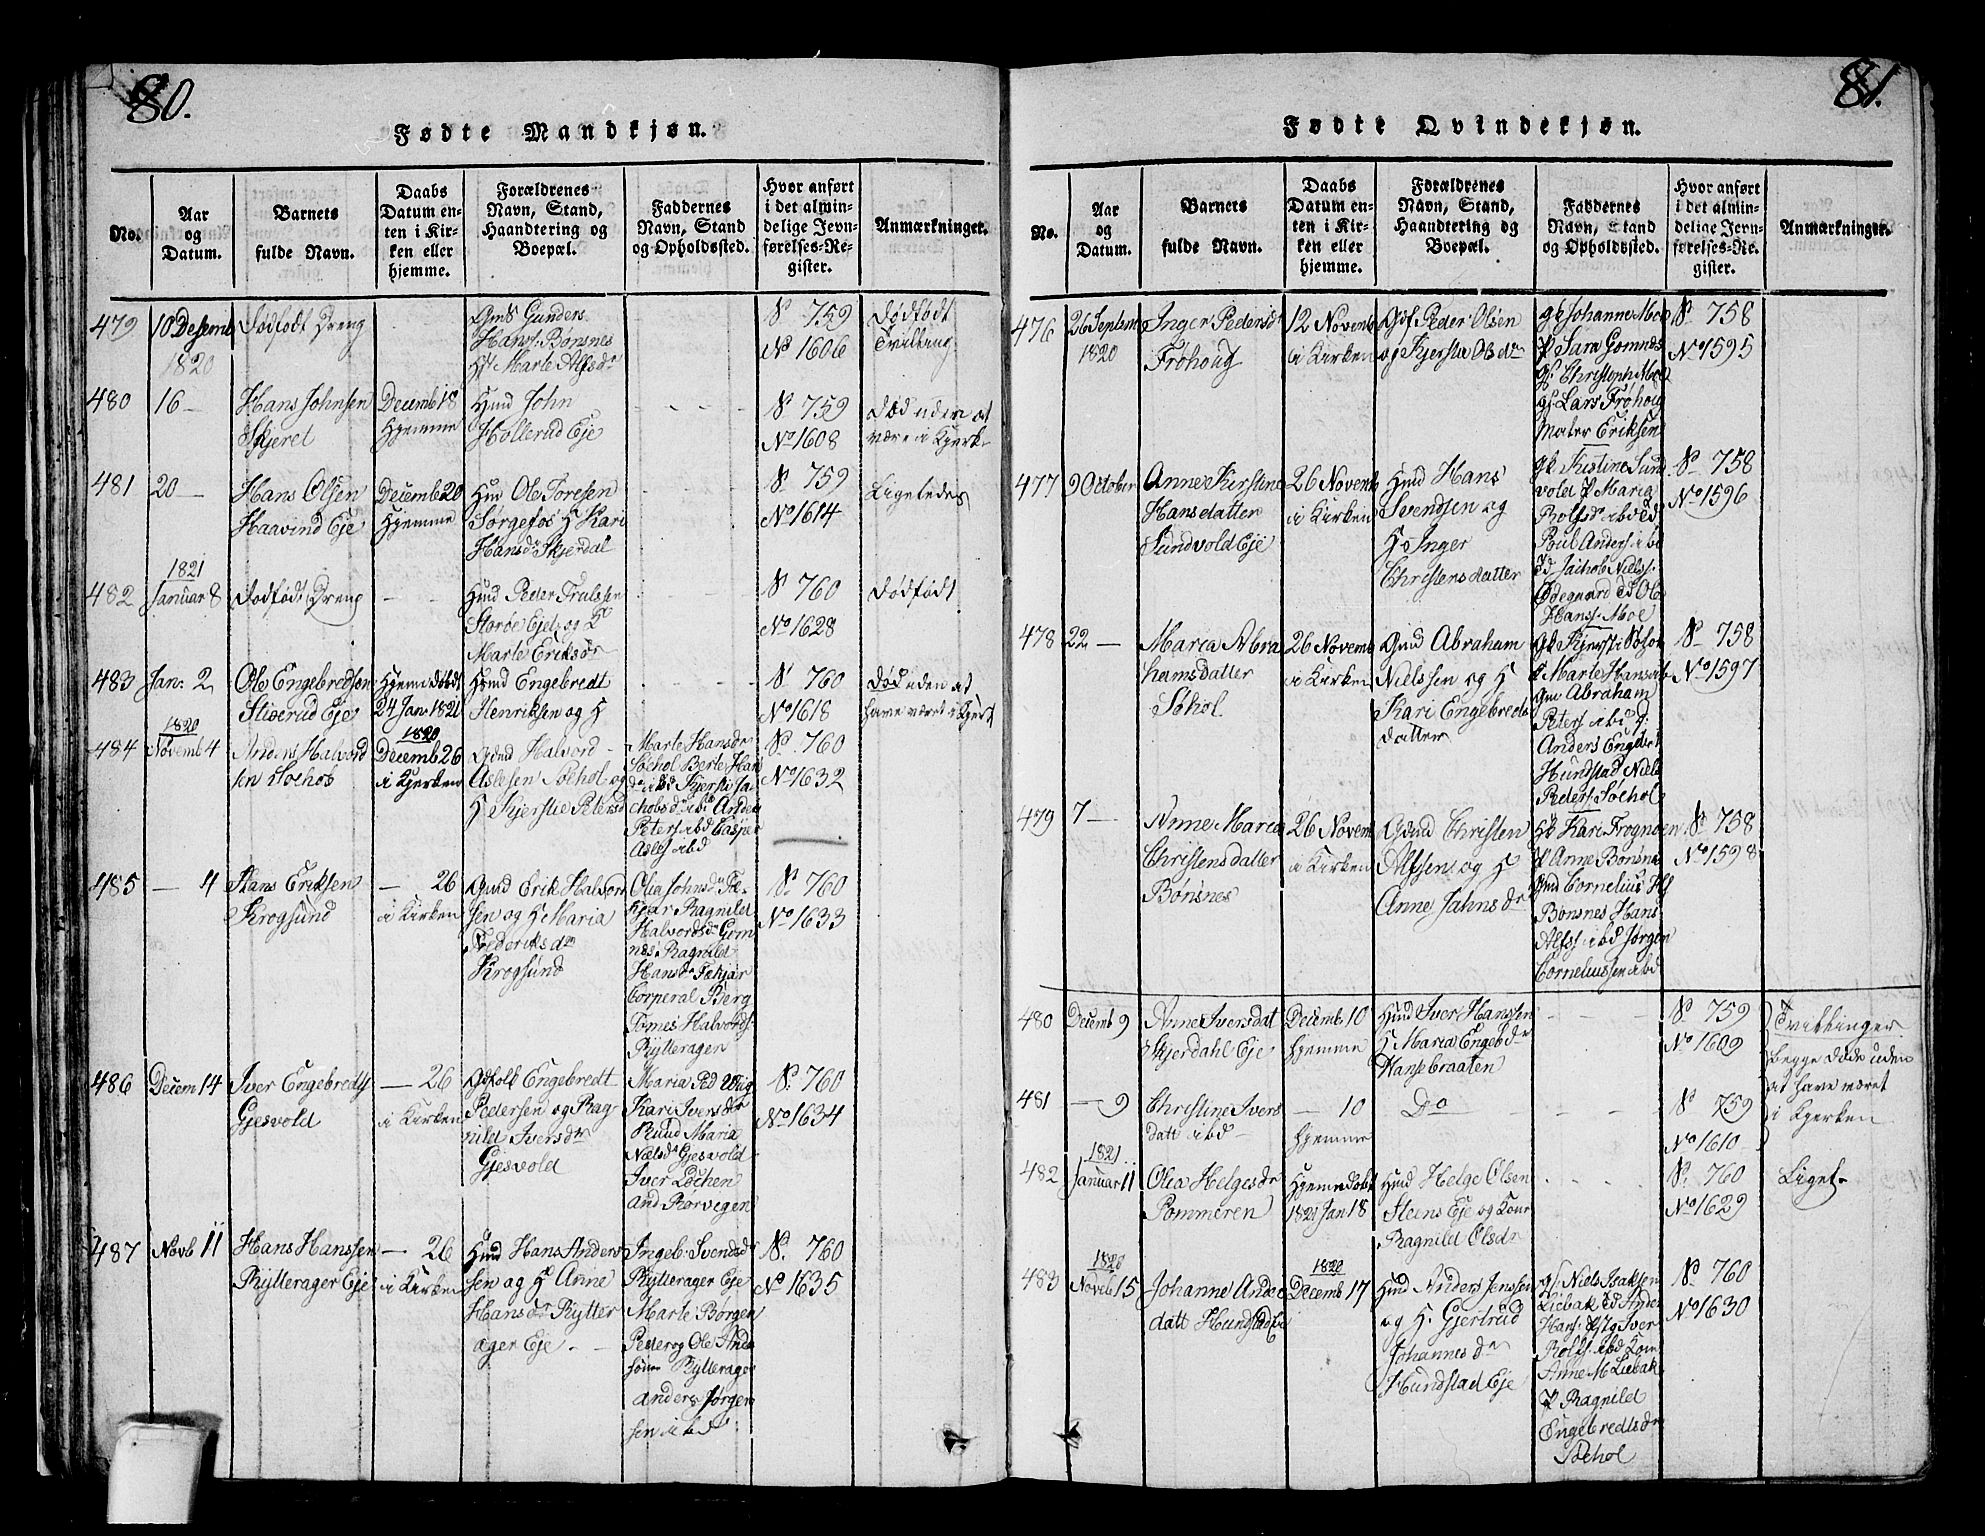 80.
Fødte Mandkjøn.
No.
Aar
og
Datum.
Barnets
fulde Navn.
Daabs
Datum en-
ten i Kir-
ken eller
hjemme.
Forældrenes
Navn, Stand,
Haandtering og
Boepæl.
Faddernes
Navn, Stand
og Opholdssted.
Hvor anført
i det almin-
delige Jevn-
førelses-Re-
gister.
Anmærkninger.
479
10 Desemb
1820
Dødfødt Dreng
Gm Gunder
Hans: Bønsnes
H: Marte Alfsdr
S 759
No 1606
Dødfødt
Tvilling
480
16 —
Hans Johnsen
Skjeret
Decemb 18
Hjemme
Huusmd John
Hollerud Eje
S 759
No 1608
Død uden at
være i Kjerk-
481
20 —
Hans Olsen
Haavind Eje
Decemb 20
Hjemme
Huusmd Ole Toresen
Sørgefos H Kari
Hansdr Skjerdal
S 759
No 1614
Ligeledes
482
1821
Januar 8
Dødfødt Dreng
Huusmd Peder Trulssen
Storøe Eje og K
Marte Eriksdr
S 760
No 1628
Dødfødt
483
Jan: 2
Ole Engebredsen
Stixrud Eje
Hjemedøbt
24 Jan 1821
Huusmd Engebredt
Henriksen og H
S 760
No 1618
Død uden at
have været i Kjerk
484
1820
Novemb 4
Anders Halvord
sen Søehol
1820
Decemb 26
i Kjerken
Gdmd Halvord
Aslesen Søehol og
H Kjerstie Petersd
Marte Hansdr
Søehol Berte Han
dr ibd Kjersti Ja-
chobsdr ibd Anders
Peters ibd Casper
Asles ibd
S. 760
No 1632
485
— 4
Hans Eriksen
Krogsund
— 26
i Kirken
Gmd Erik Halvor
sen og H Maria
Frederiksdr
Krogsund
Olia Johnsdr Fe-
kjær Ragnild
Halvordsdr Gom
næs Ragnild
Hansdr Fekjær
Corperal Berg
Tomes Halvords
Rytteragen
S. 760
No 1633
486
Decem 14
Iver Engebredts
Gjesvold
— 26
i Kirken
Engebredt
Pedersen og Rag
nild Iversdr
Gjesvold
Maria Ped Wiig
Kari Iversdr
Ruud Maria
Nælsdr Gjesvold
Iver Løchen
And Rørvegen
S. 760
No 1634
487
Novb 11
Hans Hanssen
Rytterager Eje
— 26
i Kirken
Huusmd Hans Anders
sen og H Anne
Hansdr Rytter
ager Eje
Ingeb: Svendsdr
Rytterager Eje
Marte Borgen
Peder og Ole And
sønner Rytterager
Anders Jørgen
sen ibd
S. 760
No 1635
81.
Fødte Qvindekjøn.
No.
Aar
og
Datum.
Barnets
fulde Navn.
Daabs
Datum en-
ten i Kir-
ken eller
hjemme.
Forældrenes
Navn, Stand,
Haandtering og
Boepæl.
Faddernes
Navn, Stand
og Opholdssted.
Hvor anført
i det almin-
delige Jevn-
førelses-Re-
gister.
Anmærkninger.
476
26 Septem
1820
Inger Pedersdr
Frøhoug
12 Novemb
i Kirken
Gdf Peder Olsen
og Kjerstie Olsdr
gk Johanne Moe
P Sara Gomnes
gf: Christoph Moe
gf: Lars Frøhoug
Mater Eriksen
S 758
No 1595
477
9 October
Anne Kirstine
Hansdatter
Sundvold Eje
26 Novemb
i Kirken
Huusmd Hans
Svendsen og
H Inger
Christensdatter
gk Kistine Sund
vold P Maria
Rolfsdr ibd
Poul Anders ibd
Jachob Niels:
Ødegaard Ole
Hans: Moe
S 758
No 1596
478
22 —
Maria Abra
hamsdatter
Søhol
26 Novemb
i Kirken
Gmd Abraham
Nielssen og H
Kari Engebreds
datter
gk Kjersti Søhol
P Marte Hansd ib
gm Abraham
Peters ibd
Anders Engebr
Hundstad Niels
Peders Søehol
S 758
No 1597
479
7 —
Anne Maria
Christensdatter
Bønsnes
26 Novemb
i Kirken
Gdmd Christen
Alfsen og H
Anne Jahnsdr
gk Kari Frognøen
P Anne Bønsnæs
Gmd Cornelius
Bonsnes Hans
Alfss ibd Jørgen
Corneliussen ibd
S 758
No 1598
480
Decemb 9
Anne Iversdat
Skjerdahl Eje
Decemb 10
Hjemme
Huusmd Iver Hanssen
H Maria Engebdr
Hansebraaten
S 759
No 1609
Tvillinger
begge døde uden
at have været
i Kjerken
481
— 9
Christine Ivers
datt ibd
— 10
Hjemme
Do
S 759
No 1610
482
1821
Januar 11
Olea Helgesdr
Pommeren
Hjemedøbt
1821 Jan 18
Huusmd Helge Olsen
Steens Eje og Kone
Ragnild Olsdr
S. 760
No 1629
Liget-
483
1820
Novb 15
Johanne Anders
datt Hundstad Eje
1820
Decemb 17
Huusmd Anders Jenssen
og H. Gjertrud
Johannesdr
Hundstad Eje
gf: Niels Isaksen
Liebak Anders
Hans: Iver
Rolfs ibd Kone
Anne M Liebak
P Ragnild
Engebredtsdr
Søehol
S. 760
No 1630